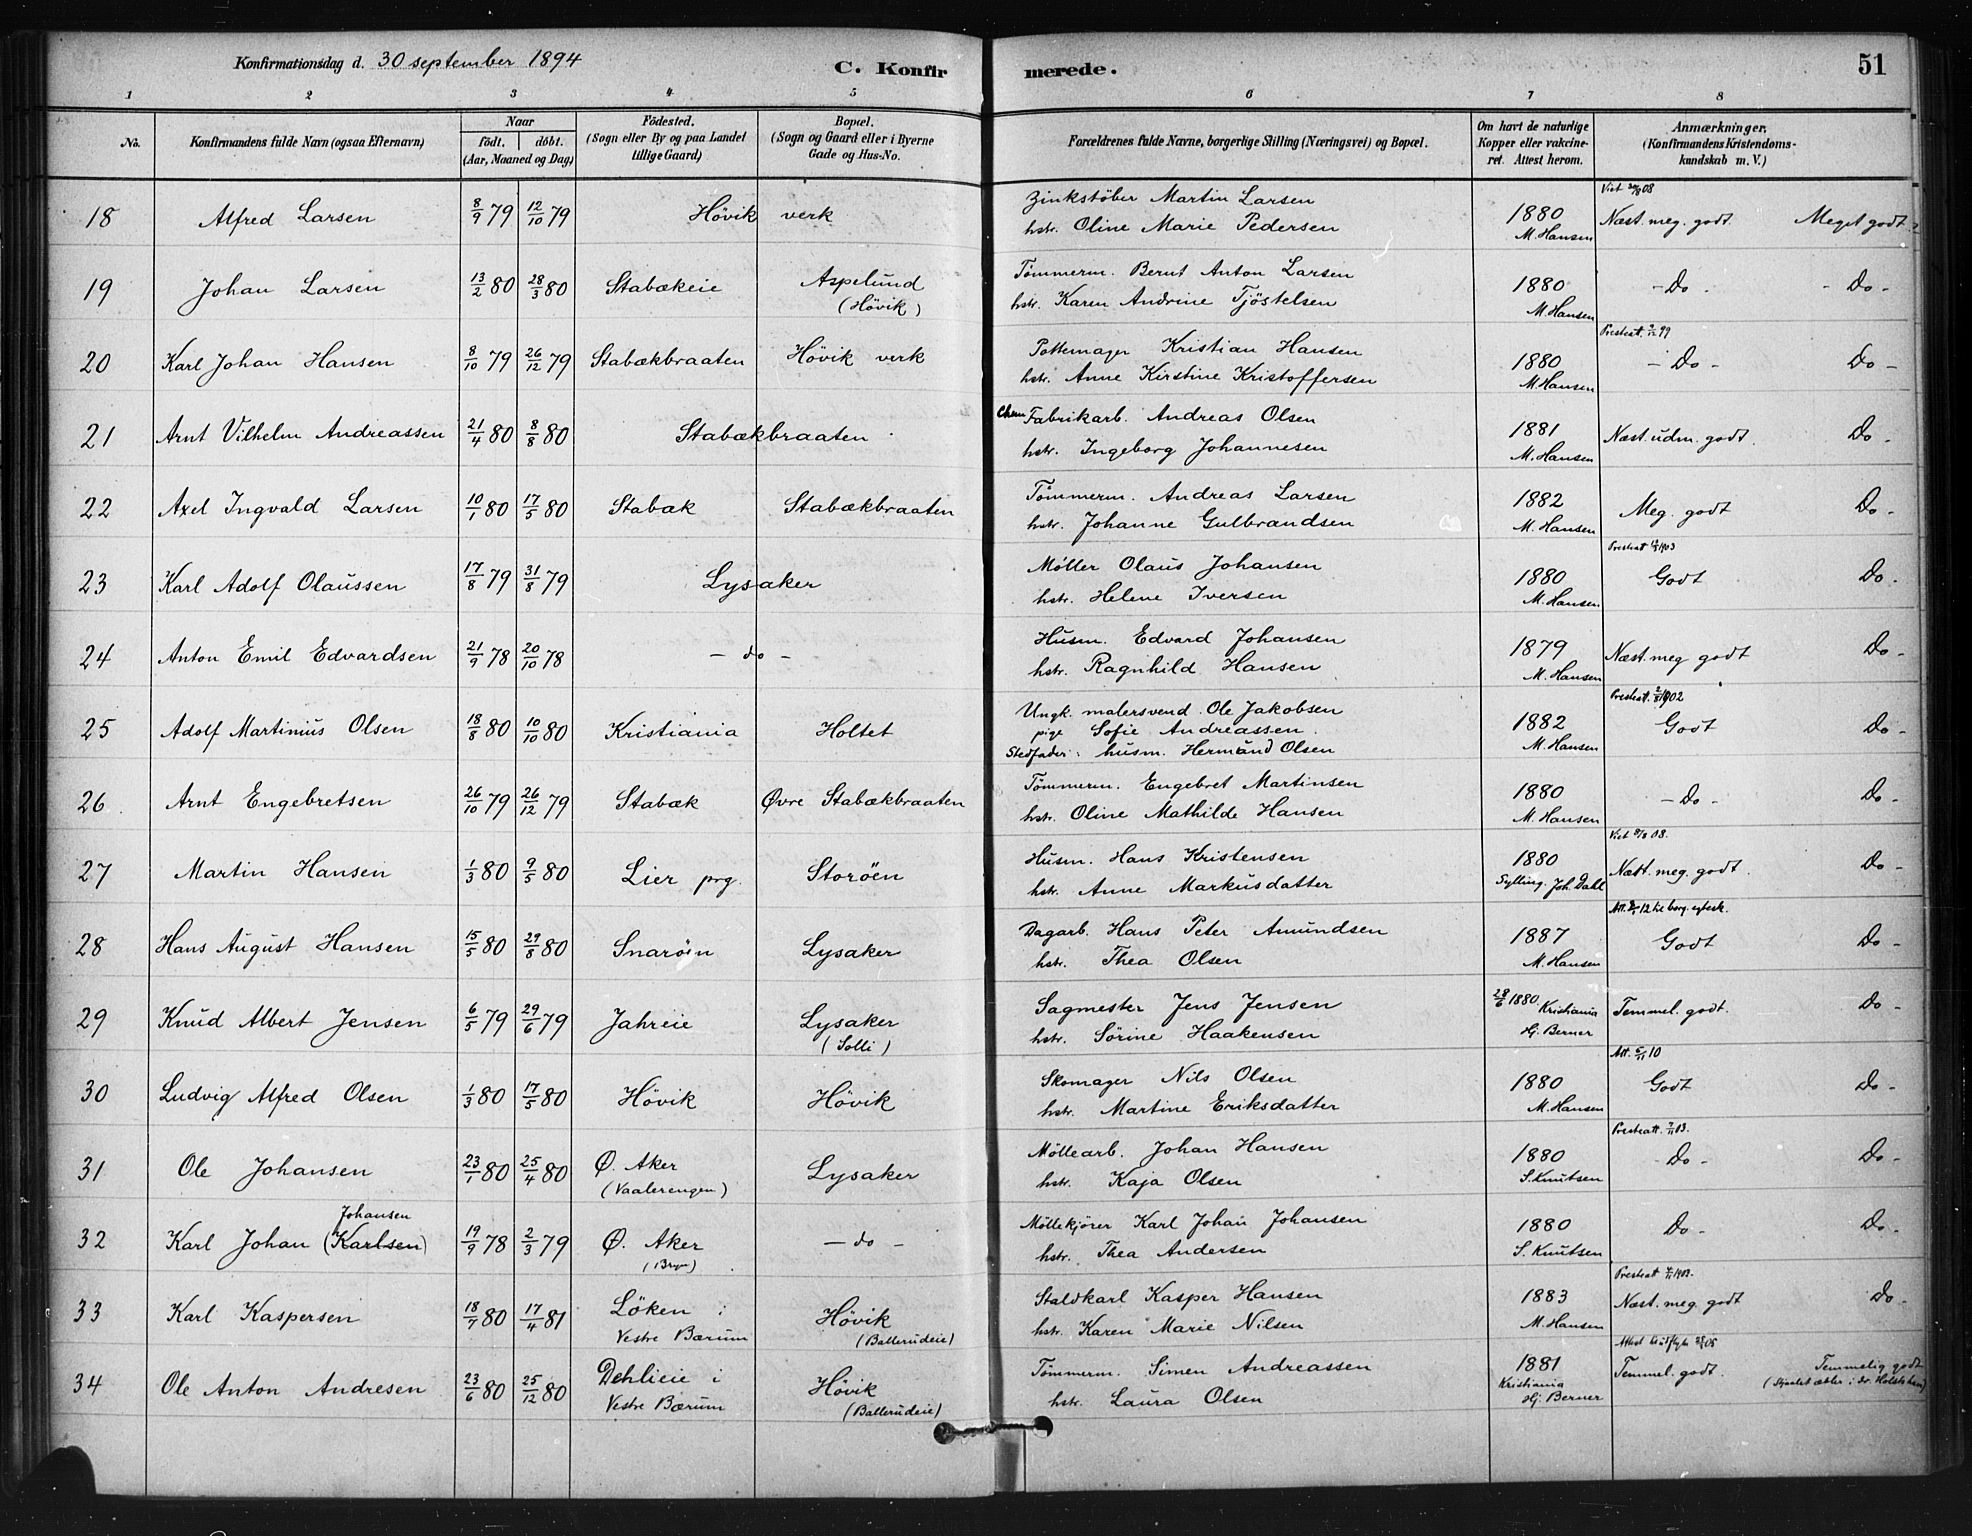 Konfirmationsdag d. 30 september 1894
C. Konfirmerede.
51
1 2 3 4 5 6 7 8
No.
Konfirmandens fulde Navn (ogsaa Efternavn)
Naar
født. døbt.
(Aar, Maaned og Dag)
Fødested.
(Sogn eller By og paa Landet
tillige Gaard)
Bopæl.
(Sogn og Gaard eller i Byerne
Gade og Hus-No.
Forældrenes fulde Navne, borgerlige Stilling (Næringsvei) og Bopæl.
Om havt de naturlige
Kopper eller vakcine-
ret. Attest herom.
Anmærkninger.
(Konfirmandens Kristendoms-
kundskab m. V.)
18 Alfred Larsen 8/9 79 12/10 79 Hövik verk
Zinkstöber Martin Larsen
hstr. Oline Marie Pedersen
1880
M. Hansen
Næst. meg. godt. Meget godt
19 Johan Larsen 13/2 80 28/3 80 Stabækeie Aspelund
(Hövik)
Tömmerm. Bernt Anton Larsen
hstr. Karen Andrine Tjöstelsen
1880
M. Hansen
- Do - - Do -
20 Karl Johan Hansen 8/10 79 26/12 79 Stabækbraaten Hövik verk
Pottemager Kristian Hansen
hstr. Anne Kirstine Kristoffersen
1880
M. Hansen
- Do - Do -
21 Arnt Vilhelm Andreassen 21/4 80 8/8 80 Stabækbraaten
Chem Fabrikarb. Andreas Olsen
hstr. Ingeborg Johannesen
1881
M. Hansen
Næst. udm. godt. Do -
22 Axel Ingvald Larsen 10/1 80 17/5 80 Stabæk Stabækbraaten
Tömmerm. Andreas Larsen
hstr. Johanne Gulbrandsen
1882
M. Hansen
Meg. godt Do -
23 Karl Adolf Olaussen 17/8 79 31/8 79 Lysaker
Möller Olaus Johansen
hstr. Helene Iversen
1880
M. Hansen
Godt Do -
24 Anton Emil Edvardsen 21/9 78 20/10 78 - do -
Husm. Edvard Johansen
hstr. Ragnhild Hansen
1879
M. Hansen
Næst. meg godt Do -
25 Adolf Martinius Olsen 18/8 80 10/10 80 Kristiania Holtet
Ungk. malersvend Ole Jakobsen
pige Sofie Andreassen.
Stedfader: husm. Hermand Olsen
1882
M. Hansen
Godt Do -
26 Arnt Engebretsen 26/10 79 26/12 79 Stabæk Øvre Stabækbraaten
Tömmerm. Engebret Martinsen
hstr. Oline Mathilde Hansen
1880
M. Hansen
- Do - Do -
27 Martin Hansen 1/3 80 9/5 80 Lier prg. Storöen
Husm. Hans Kristensen
hstr. Anne Markusdatter
1880
Sylling. Joh. Dahl
Næst. meg. godt. Do -
28 Hans August Hansen 15/5 80 29/8 80 Snaröen Lysaker
Dagarb. Hans Peter Amundsen
hstr. Thea Olsen
1887
M. Hansen
Godt Do -
29 Knud Albert Jensen 6/5 79 29/6 79 Jahreie Lysaker
(Solli)
Sagmester Jens Jensen
hstr. Sörine Haakensen
28/6 1880. Kristiania
Hj. Berner
Temmel. godt. Do -
30 Ludvig Alfred Olsen 1/3 80 17/5 80 Hövik Hövik
Skomager Nils Olsen
hstr. Martine Eriksdatter
1880
M. Hansen
Att. 5/11 10
Godt Do -
31 Ole Johansen 23/1 80 25/4 80 Ø. Aker
(Vaalerengen)
Lysaker
Möllearb. Johan Hansen
hstr. Kaja Olsen
1880
S. Knutsen
- Do - Do -
32 Karl Johan (Karlsen) Johansen 19/9 78 2/3 79 Ø. Aker
(Bryn)
- do -
Möllekjörer Karl Johan Johansen
hstr. Thea Andersen
1880
S. Knutsen
Do - Do -
33 Karl Kaspersen 18/7 80 17/4 81 Löken i
Vestre Bærum
Hövik
(Ballerudeie)
Staldkarl Kasper Hansen
hstr. Karen Marie Nilsen
1883
M. Hansen
Næst. meg. godt Do -
34 Ole Anton Andresen 23/6 80 25/12 80 Dehlieie i
Vestre Bærum
Hövik
(Ballerudeie)
Tömmerm. Simen Andreassen
hstr. Laura Olsen
1881
Kristiania
Hj. Berner
Temmel. godt. Temmelig godt